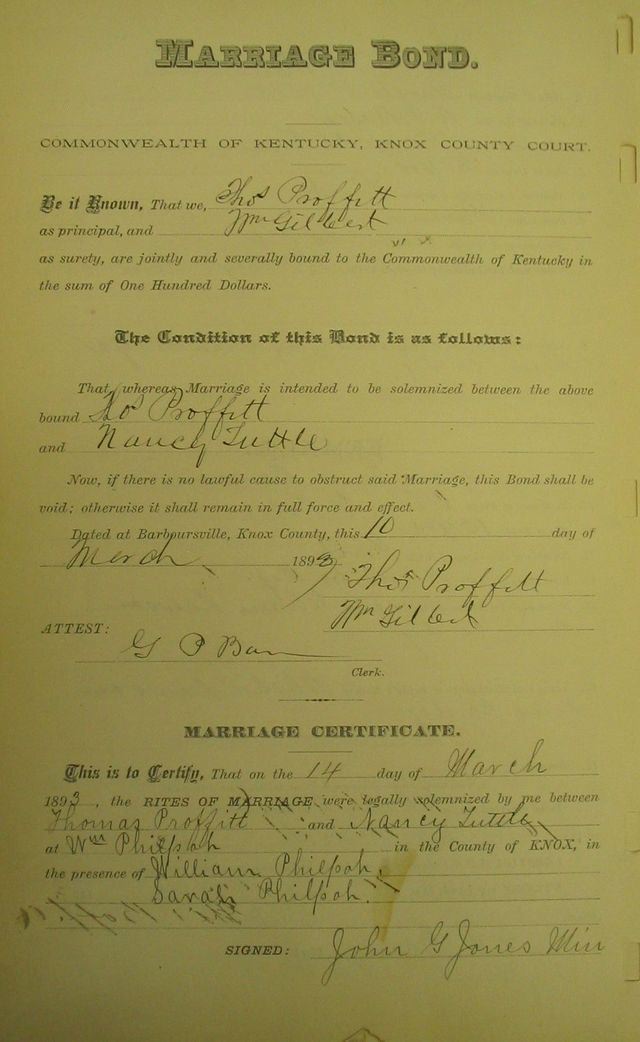 MARRIAGE BOND.
COMMONWEALTH OF KENTUCKY, KNOX COUNTY COURT.
Be it Known, That we, Thos Proffitt
as principal, and Wm Gilbert
as surety, are jointly and severally bound to the Commonwealth of Kentucky in
the sum of One Hundred Dollars.
The Condition of this Bond is as follows:
That, whereas Marriage is intended to be solemnized between the above
bound Thos Proffitt
and Nancy Tuttle
Now, if there is no lawful cause to obstruct said Marriage, this Bond shall be
void; otherwise it shall remain in full force and effect.
Dated at Barboursville, Knox County, this 10 day of
March 1893
Thos Proffitt
Wm Gilbert
ATTEST:
G P
Clerk.
MARRIAGE CERTIFICATE.
This is to Certify, That on the 14 day of March
1893, the RITES OF MARRIAGE were legally solemnized by me between
Thomas Proffitt and Nancy Tuttle
at Wm Philpoh in the County of KNOX, in
the presence of William Philpoh,
Sarah Philpoh.
SIGNED: John G Jones Min